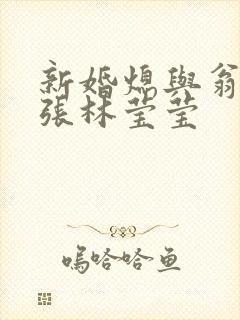 新婚熄與翁
張林莹莹
嗚哈哈鱼